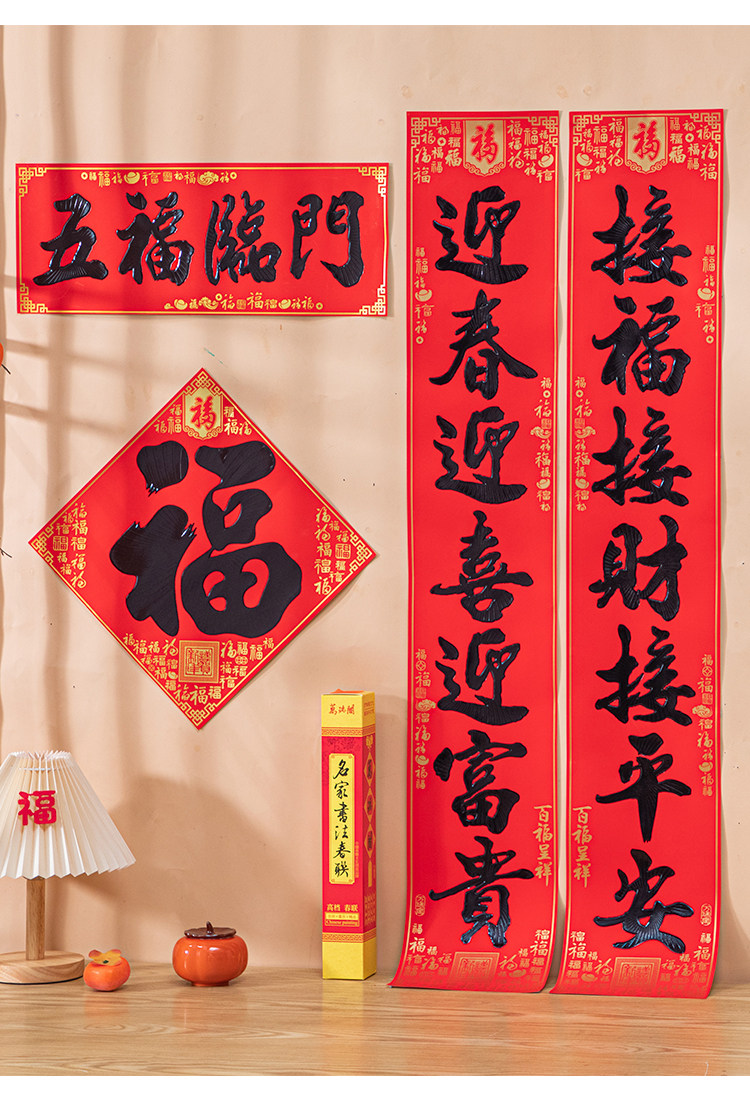 五福臨門
福
迎春迎喜迎富貴
百福呈祥
接福接財接平安
百福呈祥
福
福
福
福
名家書法春联
高档 春联